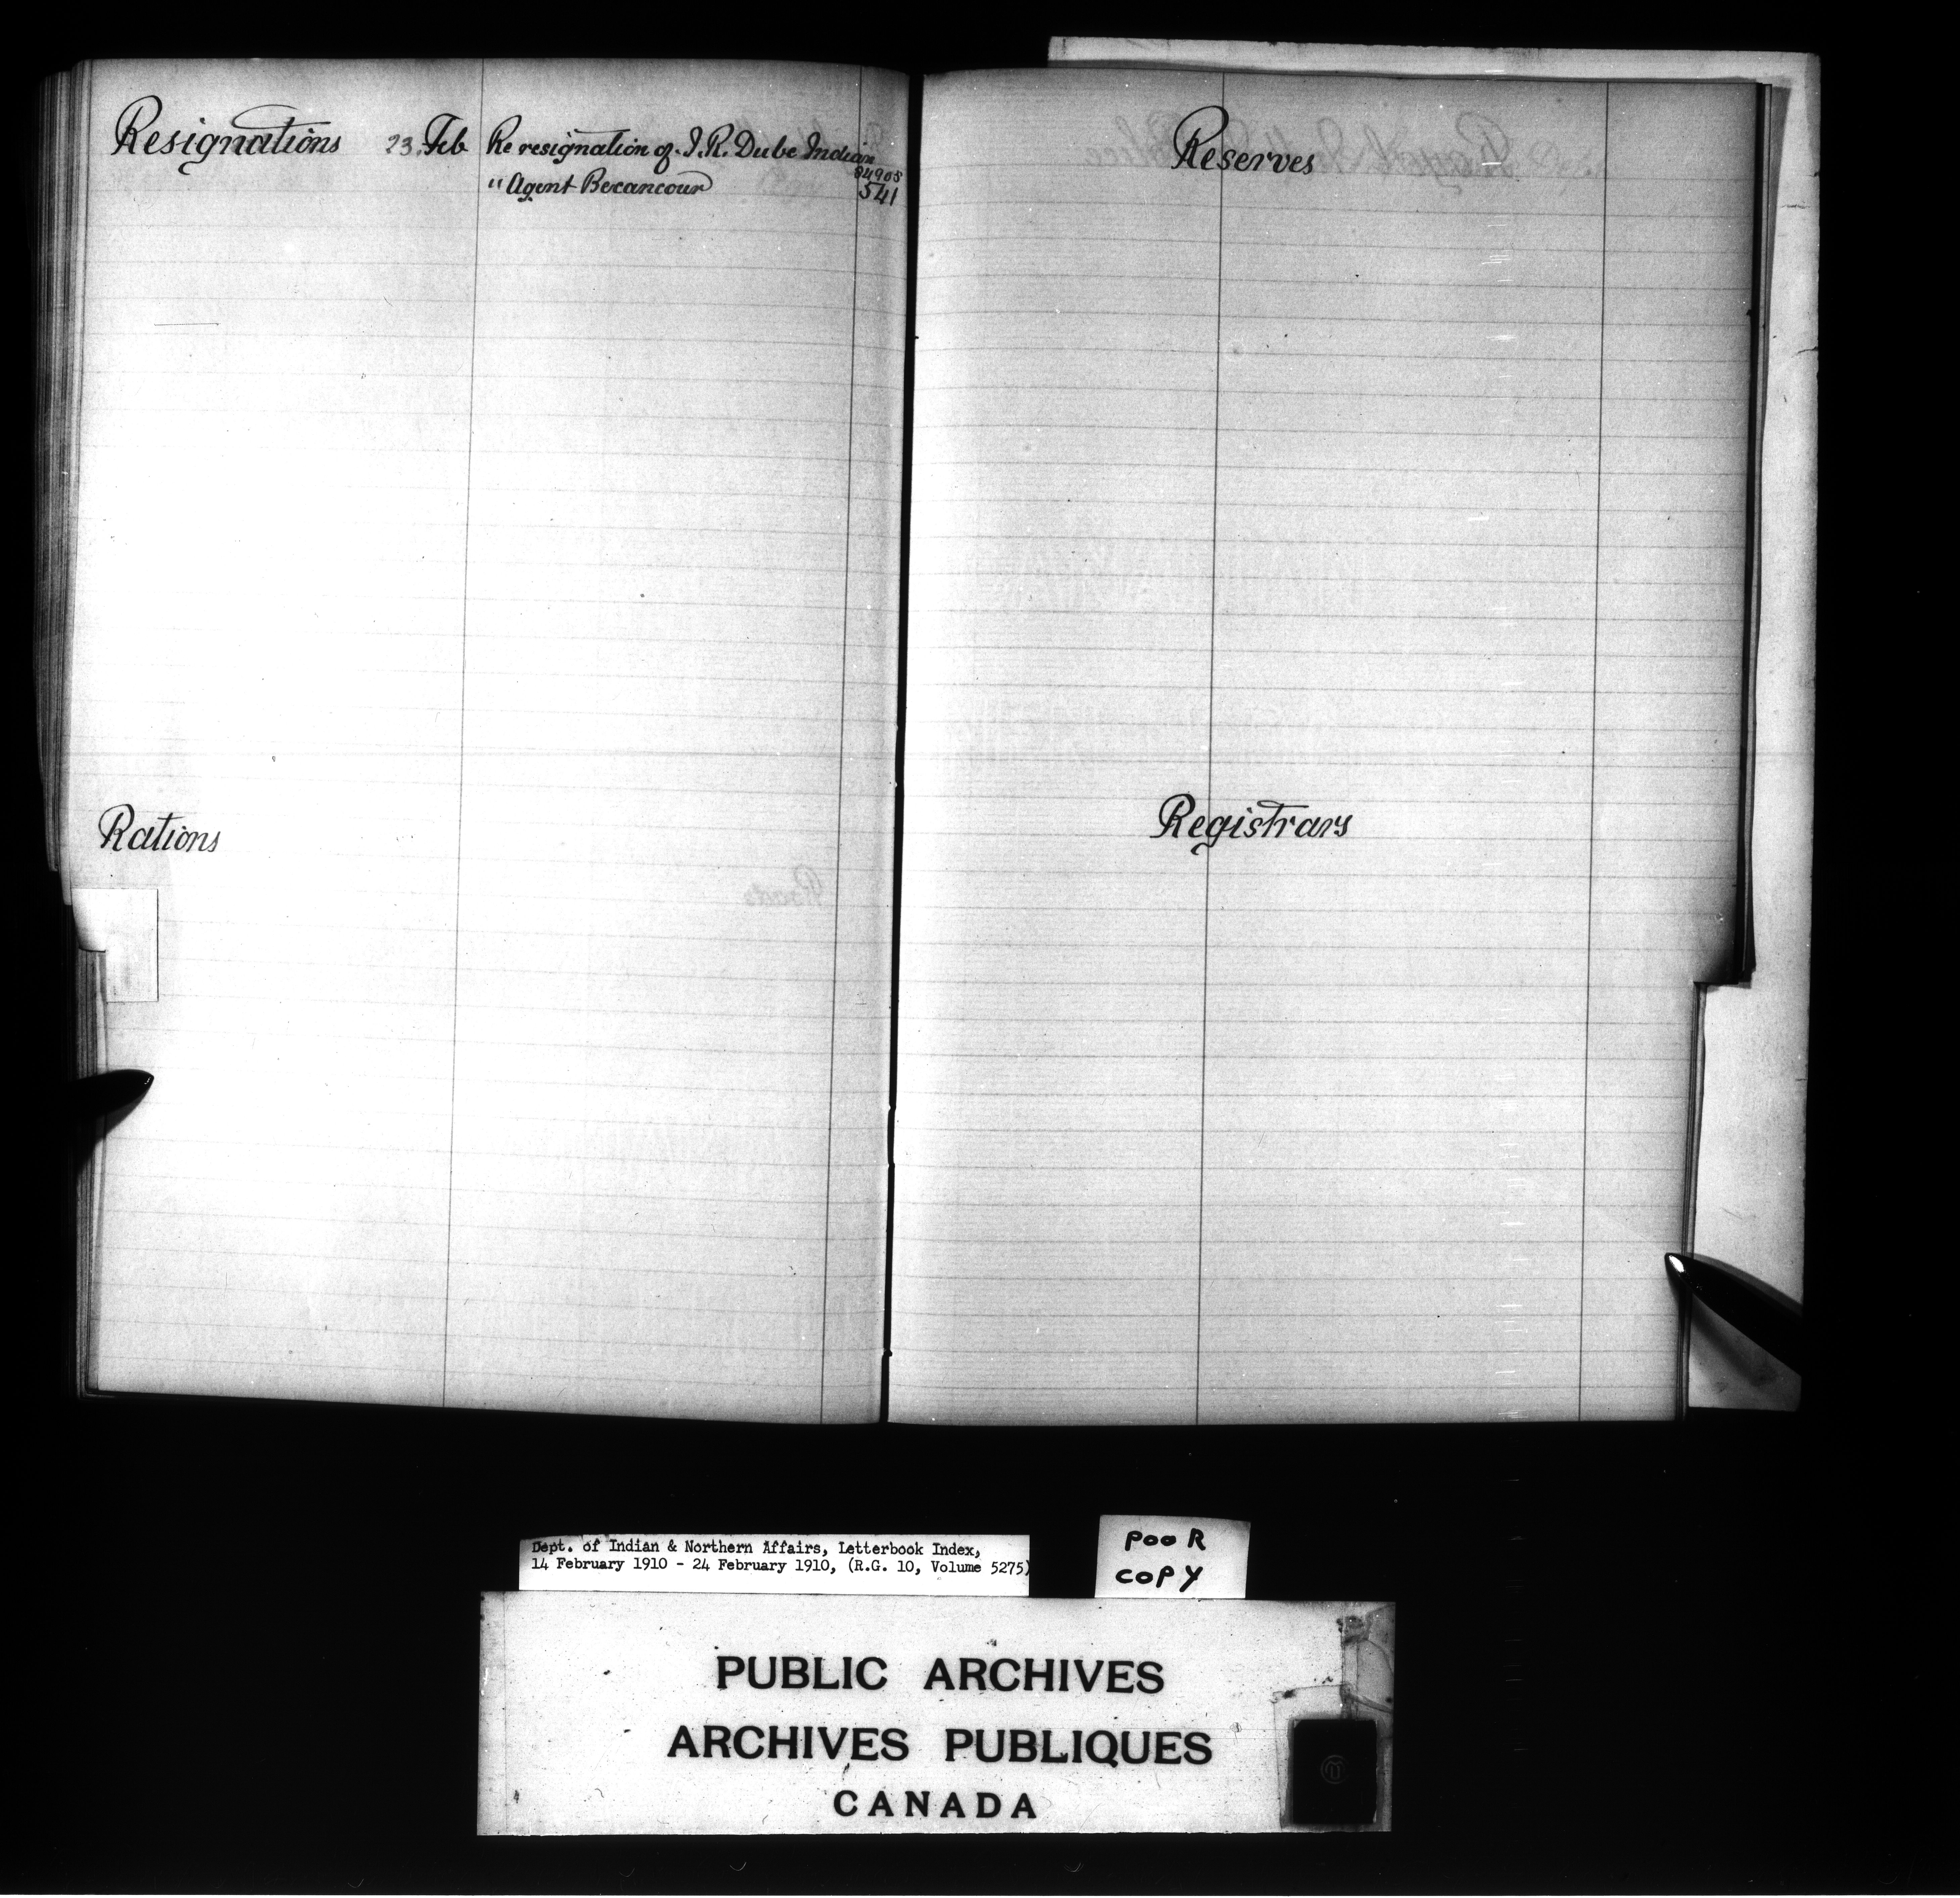 Resignations 23. Feb Re resignation of J. R. Dube Indian
" Agent Becancour 84905 541
Rations
Reserves
Registrars
Dept. of Indian & Northern Affairs, Letterbook Index,
14 February 1910 - 24 February 1910, (R.G. 10, Volume 5275)
POOR
COPY
PUBLIC ARCHIVES
ARCHIVES PUBLIQUES
CANADA